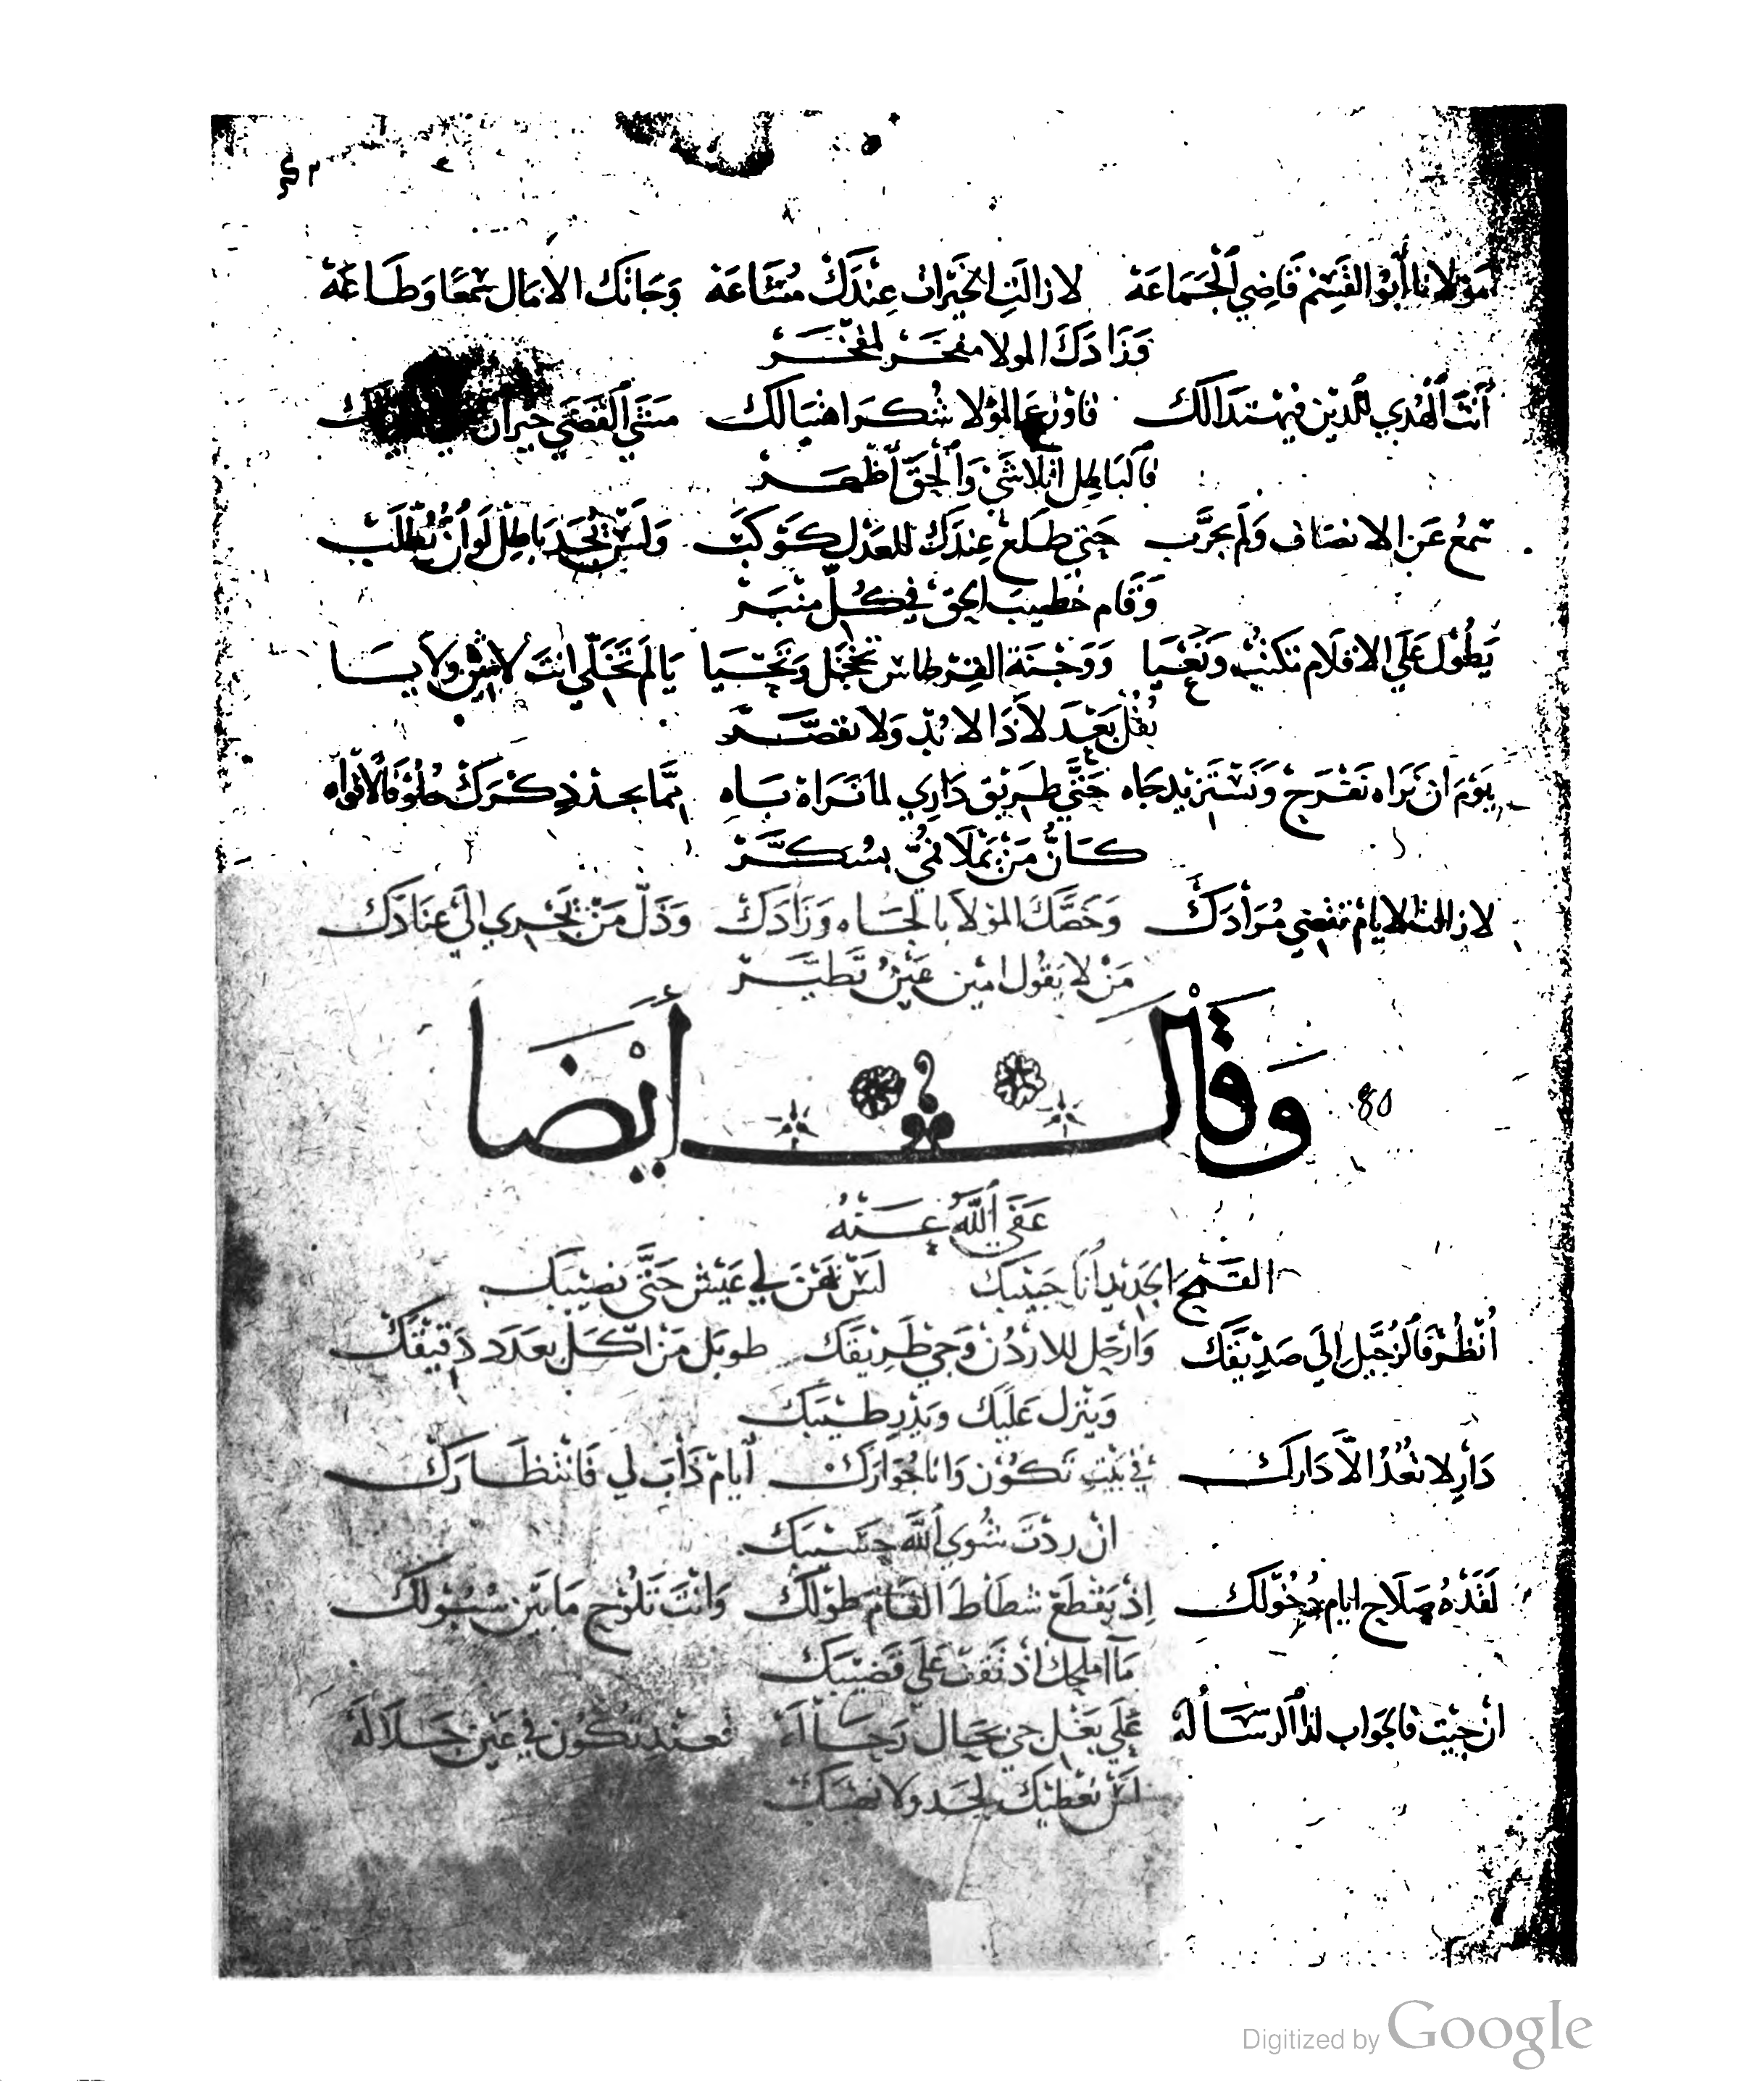 مَوْلانا أَبُو القَسِمْ قَاضِي اَلْجَمَاعَهْ لا زالَتِ الخَيْرات عِنْدَكْ مُشَاعَهْ وَجَاتَك الامَال سَمْعًا وَطَاعَهْ
وَزَادَكَ المولا مفخَرْ لمَفْخَرْ
أَنْتَ اَلْهُدي للدِين فيهتدَا لَكْ شُكرَا هُنَالَكْ
فَالْبَاطِل اتلَاشَىْ وَاَلْحَقّ اَظْهَرْ
سَمعْ عَن الانصَاف وَلَم يجَرَّب حَتى طَلَعْ عِنْدَكْ للعَدْل كَوْكَبْ وَلَسْ يُجَدْ بَاطِلْ لَوْ أنُّ يُطْلَبْ
وَقَام خَطِيب الحق في كُلّ مِنْبَرْ
يَطُول عَلَي الاقلَام تكتُبْ وَتَعْيَا وَوَجْنَة القِرْطاس تخْجَل وَتَحْيَا يَا لَم تَخَلّي انتَ لَاشْ ولَا يسَا
يُقْل بَعْدَ لاَذَا لابُدّ وَلا تقصَّرْ
يَوْم ان نَرَاه نَفْرَحْ وَنَسْتَزِيد جَاه حَتَّي طَرِيق دَارِي لمَا نَرَاهْ بَاهِ ذِكْرَكْ حُلُوْ فَالَافْوَاه
كَانُّ مَنْ يَمْلَا فُمُّ بسُكَّرْ
لا زالت الايام تقضِي مُرَادَكْ وَخَصَّكَ المَوْلاَ بِالجَاه وَزَادَكْ وَذَلّ مَنْ يَجْرِي الَى عِنَادَكْ
مَنْ لا يَقُول امِين عَيْنُ تَطيَّرْ
80 وَقَالَ أَيْضًا
عَفَى اَللَّهُ عَنْهُ
القَمْح الجَدِيد أَنَا حَبيبَك لَسْ نَهْنَ لِي عَيْش حَتَّى نصِيبَك
أُنْظُرْ فَالرُّجَّيل إلَى صَدِيقَك وَارْحَل للارْدُنْ وَجي طَرِيقَك طوبَل مَنْ اكَل بعَدَد دَقِيقَكْ
وَيَنْزل عَلَيك وَيَذْر طيبَكْ
دَارِ لا تعُدْ الَّا دَارَكْ في بَيْتِ تَكُوْن وَانا جُوَارَكْ أيَامْ ذَابَ لي فَانْتظَارَكْ
انْ ردْتَ شُوي اَللَّه حَسيبَك
لَقَدْهُ صَلَاح ايام دُخُولَك إذ يَقْطَعْ شطَاطَ القَامَ طوْلَك وَانْتَ تَلُوح مَا بَيْن سُبُولَك
مَا امْلحك اذْ تَقِف عَلَى قَضيبَك
ان جيت فَالجَوَاب لذَا الرسَالَهْ عَلَي بَغْل جي بحَال فعند تكُون في عَين جَلَالَهْ
لَسْ نعْطِيك لحَد ولا نصيبَك
Digitized by Google